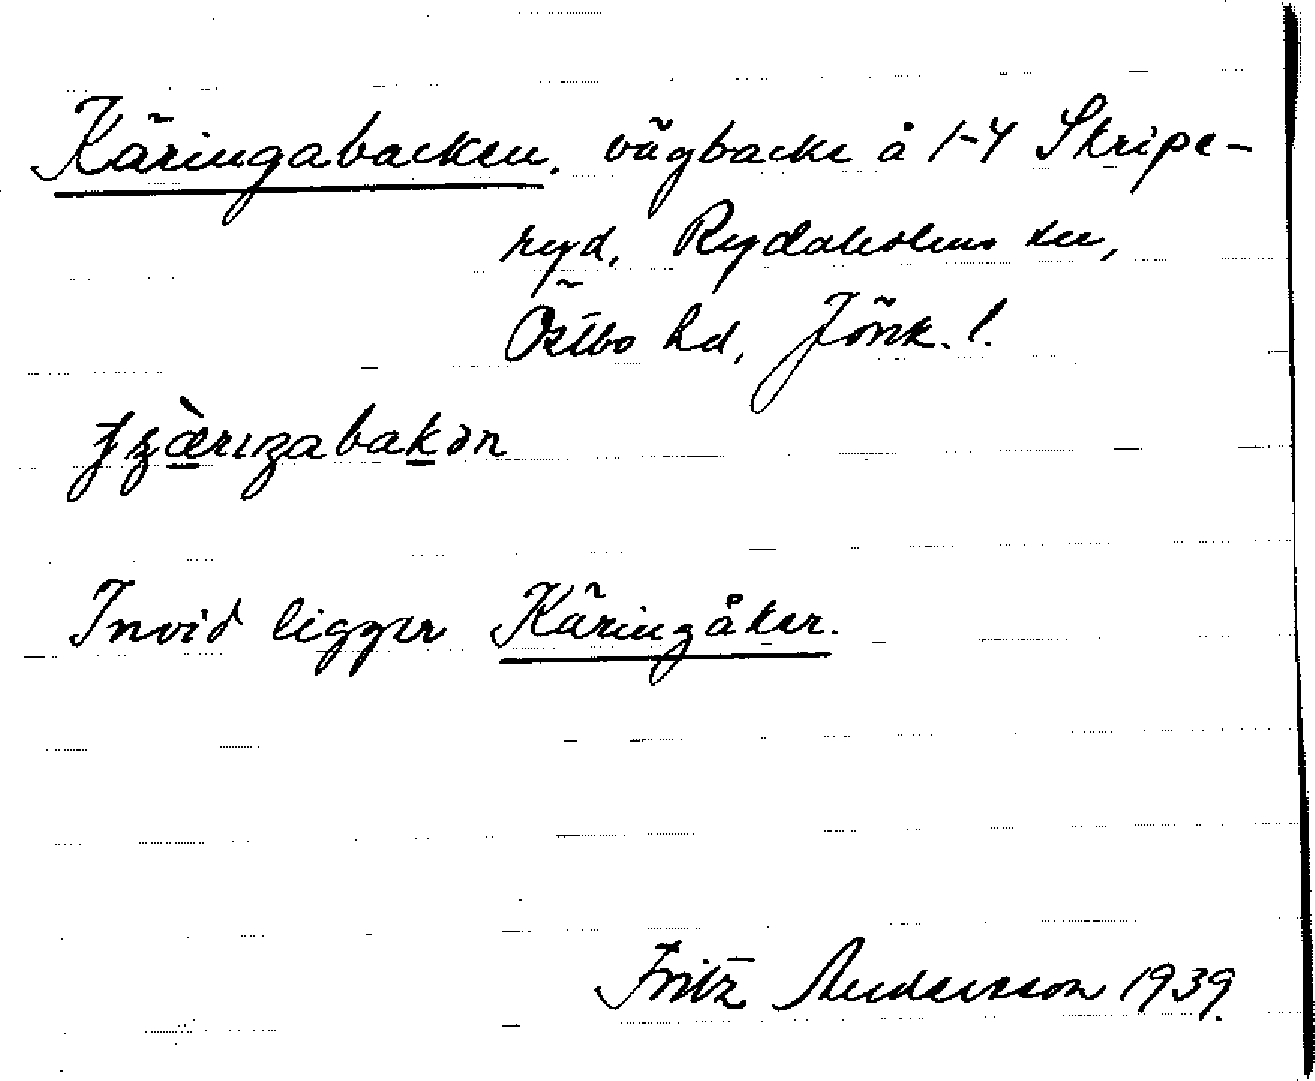 Käringabacken. vägbacke å 1-4 Skripe-
ryd, Rydaholms sn,
Östbo hd, Jönk. l.
Invid ligger Käringåker.
Fritz Andersson 1939.